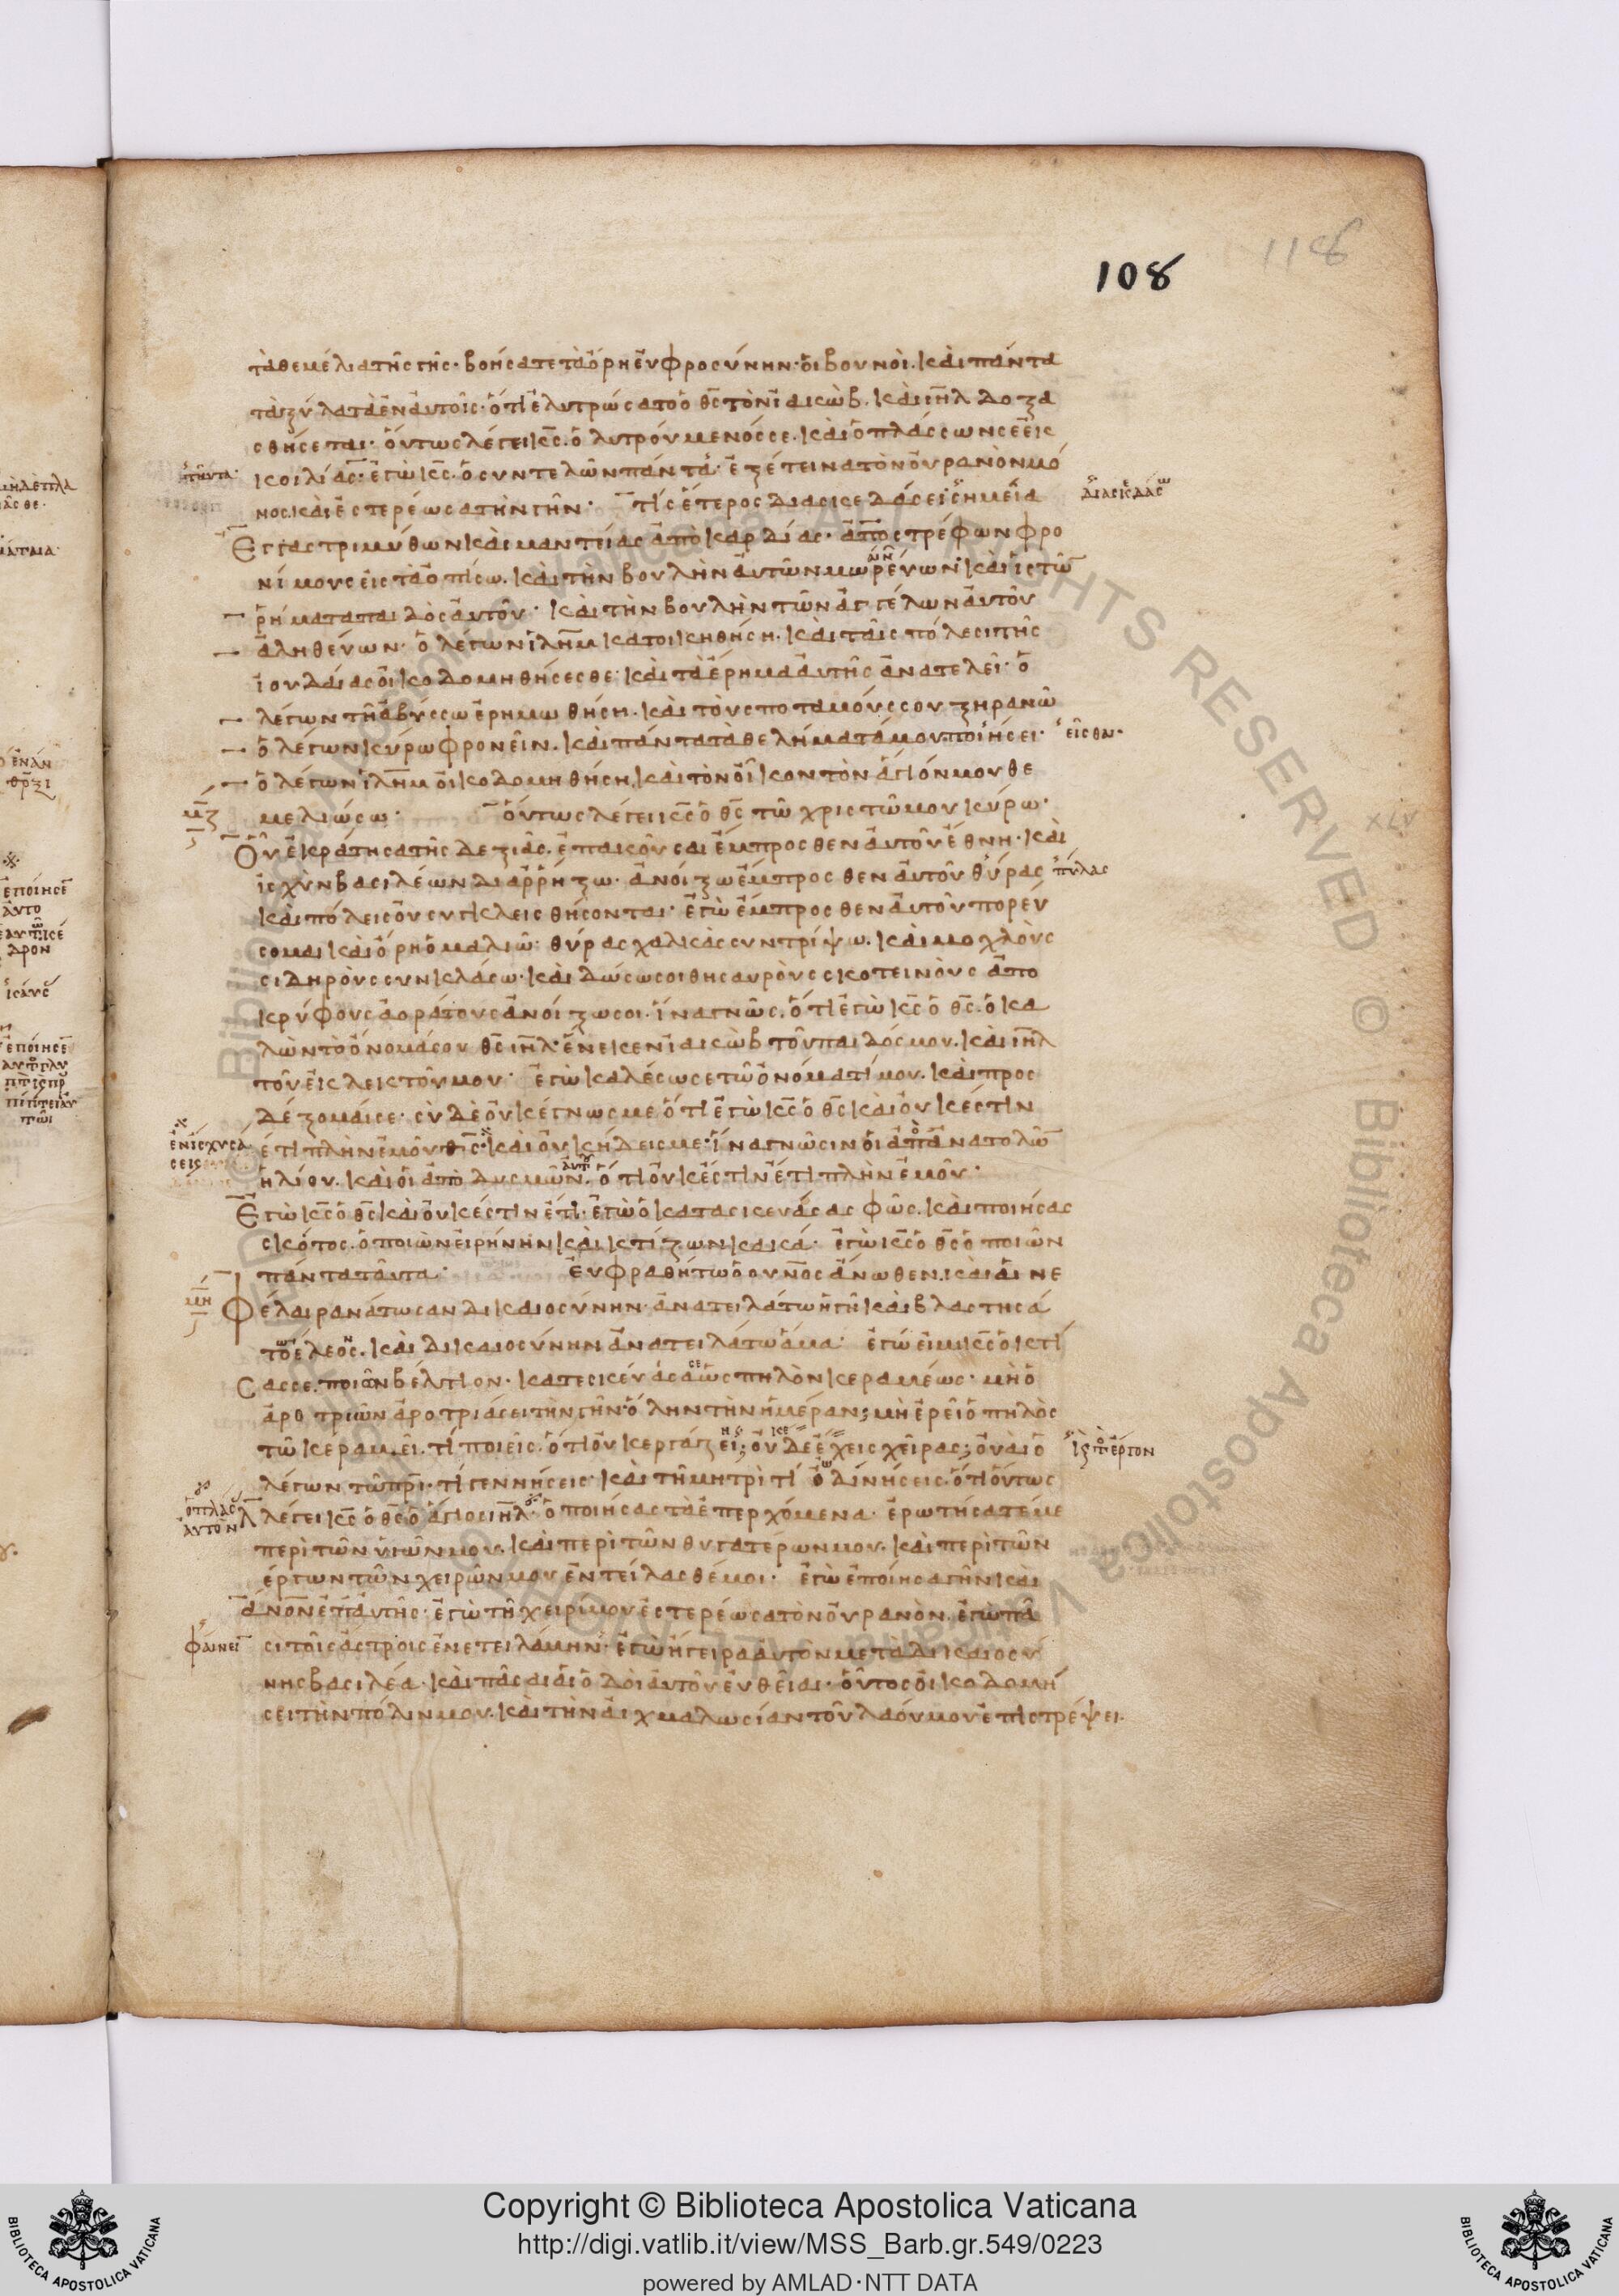 108
118
τὰ θεμέλια τῆς γῆς· βοήσατε τὰ ὄρη ἐυφροσύνην· ὁι βουνοὶ. κὰι πάντα
τὰ ξύλα τὰ ἐν ἀυτοῖς· ὅτι ἐλυτρώσατο ὁ θς τὸν ϊακὼβ. κὰι ιηλ δοξα
σθήσεται· ὅυτως λέγει κς. ὁ λυτρόυμενός σε. κὰι ὁ πλάσσων σε ἐκ
πάντα·
κοιλίας· ἐγὼ κς. ὁ συντελῶν πάντα· ἐξέτεινα τὸν ὀυρανὸν μό
νος. κὰι ἐστερέωσα τὴν γῆν· τίς ἕτερος διασκεδάσει σημεῖα
διασκεδάσω
Εγγαστριμύθων κὰι μαντείας ἀπὸ καρδίας· ἀποστρέφων φρο
νίμους ἐις τὰ ὀπίσω. κὰι τὴν βουλὴν ἀυτῶν μωρέυων· κὰι ἱστῶν
ῥήματα παιδὸς ἀυτοῦ· κὰι τὴν βουλὴν τῶν ἀγγέλων ἀυτοῦ
ἀληθέυων· ὁ λέγων ϊλημ κατοικηθήση. κὰι τᾶις πόλεσι τῆς
ϊουδάιας ὀικοδομηθήσεσθε· κὰι τὰ ἔρημα ἀυτῆς ἀνατελεῖ· ὁ
λέγων τῆ ἀβύσσω ἐρημωθήση. κὰι τὸυς ποταμόυς σου ξηρανῶ
ὁ λέγων κύρω φρονεῖν. κὰι πάντα τὰ θελήματά μου ποιήσει·
εῖσθαι·
ὁ λέγων ϊλημ ὀικοδομηθήση, κὰι τὸν ὀῖκον τὸν ἅγιόν μου θε
μζ
μελιώσω· ὅυτως λέγει κς ὁ θς τῶ χριστῶ μου κύρω·
Οὗ ἐκράτησα τῆς δεξιᾶς. ἐπακοῦσαι ἔμπροσθεν ἀυτοῦ ἔθνη· κὰι
ἰσχὺν βασιλέων διαῤῥήξω· ἀνοίξω ἔμπροσθεν ἀυτοῦ θύρας
πύλας
κὰι πόλεις ὀυ συγκλεισθήσονται· ἐγὼ ἔμπροσθεν ἀυτοῦ πορέυ
σομαι κὰι ὄρη ὁμαλιῶ· θύρας χαλκὰς συντρίψω. κὰι μοχλὸυς
σιδηρὸυς συνκλάσω· κὰι δώσω σοι θησαυρὸυς σκοτεινὸυς ἀπο
κρύφους ἀοράτους ἀνοίξω σοι. ἵνα γνῶς. ὅτι ἐγὼ κς ὁ θς. ὁ κα
λῶν τὸ ὄνομά σου θς ιηλ· ἕνεκεν ϊακὼβ τοῦ παιδός μου. κὰι ιηλ
τοῦ ἐκλεκτοῦ μου· ἐγὼ καλέσω σε τῶ ὀνόματί μου. κὰι προσ
δέξομαί σε· σὺ δὲ ὀυκ ἔγνως με ὅτι ἐγὼ κς ὁ θς κὰι ὀυκ ἔστιν
ἐνίσχυσά
σε
ἔτι πλὴν ἐμοῦ θς· κὰι ὀυκ ἤδεις με· ἵνα γνῶσιν ὁι ἀπ ἀνατολῶν
ἡλίου. κὰι ὁι ἀπὸ δυσμῶν. ὅτι ὀυκ ἔστιν ἔτι πλὴν ἐμοῦ·
Εγὼ κς ὁ θς κὰι ὀυκ ἔστιν ἔτι· ἐγὼ ὁ κατασκευάσας φῶς. κὰι ποιήσας
σκότος. ὁ ποιῶν εἰρήνην κὰι κτίζων κακά· ἐγὼ κς ὁ θς ὁ ποιῶν
πάντα τᾶυτα· ἐυφρανθήτω ὁ ουνος ἄνωθεν. κὰι ἁι νε
μη
Φέλαι ρανάτωσαν δικαιοσύνην· ἀνατειλάτω ἡ γῆ κὰι βλαστησά
τω ἔλεος. κὰι δικαιοσύνην ἀνατειλάτω ἅμα· ἐγώ εἰμι κς ὁ κτί
Σας σε. ποῖον βέλτιον· κατεσκέυασα ὡς πηλὸν κεραμέως· μὴ ὁ
ἀροτριῶν ἀροτριάσει τὴν γῆν· ὅλην τὴν ἡμέραν; μὴ ἐρεῖ ὁ πηλὸς
τῶ κεραμεῖ. τί ποιεῖς. ὅτι ὀυκ ἐργάζει; ὀυδὲ ἔχεις χεῖρας; ὀυὰι ὁ
λέγων τῶ πρι· τί γεννήσεις· κὰι τῆ μητρὶ τί ὀδινήσεις. ὅτι ὅυτως
ὁ πλάσας
ἀυτὸν
λέγει κς ὁ θς ὁ ἅγιος ιηλ· ὁ ποιήσας τὰ ἐπερχόμενα· ἐρωτήσατέ με
περὶ τῶν ὑιῶν μου. κὰι περὶ τῶν θυγατέρων μου. κὰι περὶ τῶν
ἔργων τῶν χειρῶν μου ἐντείλασθέ μοι· ἐγὼ ἐποίησα γῆν κὰι
ανον ἐπ ἀυτῆς· ἐγὼ τῆ χειρί μου ἐστερέωσα τὸν ὀυρανὸν. ἐγὼ πᾶ
σι τοῖς ἄστροις ἐνετειλάμην· ἐγὼ ἤγειρα ἀυτὸν μετὰ δικαιοσύ
νης βασιλέα· κὰι πᾶσαι ἁι ὁδοὶ ἀυτοῦ ἐυθεῖαι· ὅυτος ὀικοδομή
σει τὴν πόλιν μου. κὰι τὴν ἀιχμαλωσίαν τοῦ λαόυ μου ἐπιστρέψει·
Copyright © Biblioteca Apostolica Vaticana
http://digi.vatlib.it/view/MSS_Barb.gr.549/0223
powered by AMLAD·NTT DATA
BIBLIOTECA APOSTOLICA VATICANA
BIBLIOTECA APOSTOLICA VATICANA